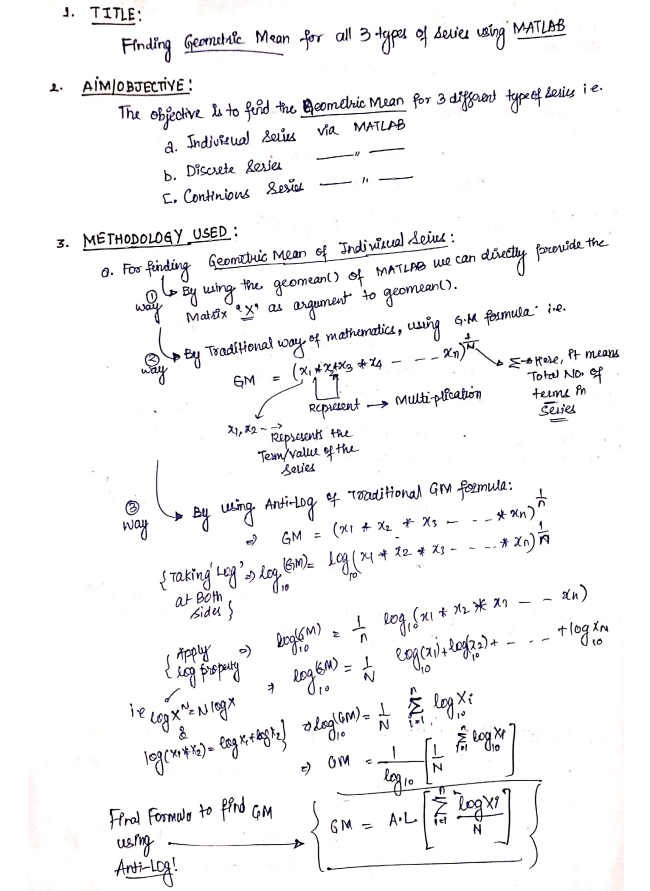 1. TITLE:
Finding Geometric Mean for all 3 types of Series using MATLAB
2. AIM/OBJECTIVE:
The objective is to find the Geometric Mean for 3 different type of Series i.e.
a. Indivisual Series via MATLAB
b. Discrete Series —— " ——
c. Continious Series —— " ——
3. METHODOLOGY USED:
a. For finding Geometric Mean of Indivisual Seies:
① way ↳ By using the geomean() of MATLAB we can directly provide the
Matrix "X" as argument to geomean().
② way By Traditional way of mathematics, using G.M formula i.e.
GM = (x1 * x2 * x3 * x4 - - - - xn)^1/N
Σ→ Here, it means
Total No. of
terms in
Series
Represent → Multi-plication
x1, x2 - → Represents the
Term/Value of the
Series
③ way By using Anti-Log of Traditional GM formula:
⇒ GM = (x1 * x2 * x3 - - - * xn)^1/n
{Taking 'Log' at Both sides} ⇒ log10(GM) = log10(x1 * x2 * x3 - - - * xn)^1/N
{Apply log property ⇒ log10(GM) = 1/n log10(x1 * x2 * x3 - - xn)
⇒ log10(GM) = 1/N log10(x1) + log10(x2) + - - - + log10 xn
i.e log x^N = N log x
&
log(x1*x2) = log x1 + log x2} ⇒ log10(GM) = 1/N Σ(i=1 to n) log10 xi
⇒ GM = 1/log10 [1/N Σ(i=1 to n) log10 xi]
Final Formula to find GM
using
Anti-Log! → { GM = A.L [Σ(i=1 to n) log xi / N] }